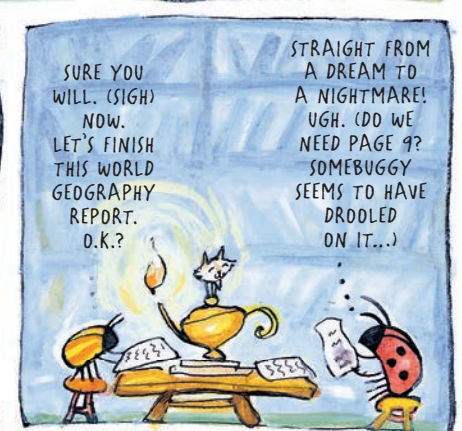 SURE YOU
WILL. (SIGH)
NOW.
LET'S FINISH
THIS WORLD
GEOGRAPHY
REPORT.
O.K.?
STRAIGHT FROM
A DREAM TO
A NIGHTMARE!
UGH. (DO WE
NEED PAGE 9?
SOMEBUGGY
SEEMS TO HAVE
DROOLED
ON IT...)